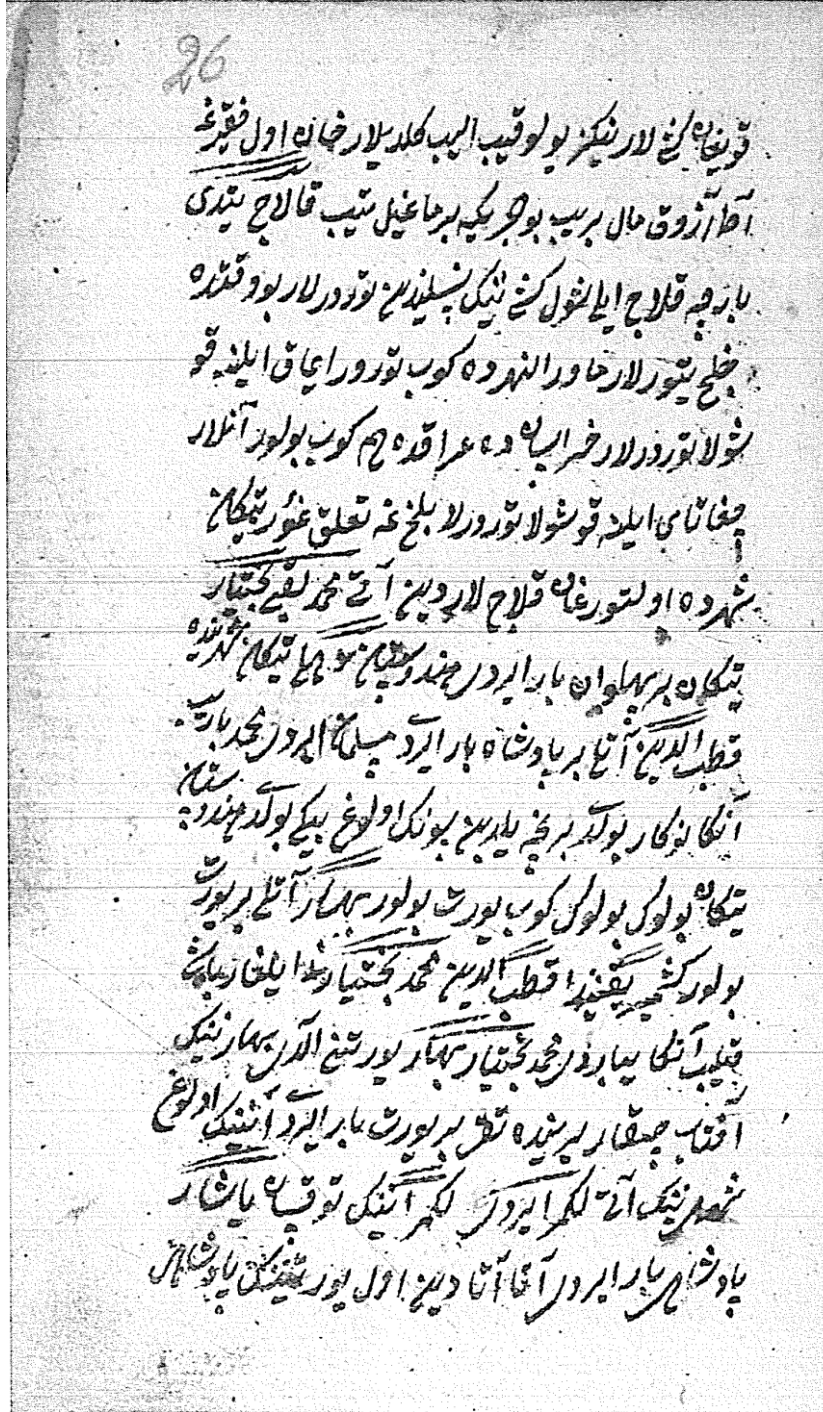 26
قویغان کشی لارنینکز یولوقیب الیب کلدیلار خان اول فقیرغه
آط آزوق مال بریب بو جریکه برماغیل تیب قالاج تیدی
بارچه قلاج ایلی شول کشی نینک نسلیندین تورورلار بو وقتده
خلج تیتورلار ماورالنهرده کوب تورور ایماق ایلنه قو
شولا تورورلار خراسان ده عراقده هم کوب بولور آنلار
چغاتای ایلنه قوشولا تورورلا بلخ غه تعلق غور تیکان
شهرده اولتورغان قلاج لاردین آتی محمد بختیار
تیکان بر پهلوان بار ایردی هندوستان تیکان شهرینده
قطب الدین آتلی بر پادشاه بار ایردی مسلمان ایردی محمد باریب
آنکا نوکار بولدی بر نچه یلدین سونک اولوغ بیکی بولدی هندوستان
تیکان بولوک بولوک کوب یورت بولور بهار آتلی بر یورت
بولور کشمیر یقینیدا قطب الدین محمد بختیارنی ایلغار باش
قیلیب آنکا یباردی محمد بختیار بهار یورتنی الدی بهارنینک
آفتاب چیقار یرینده تقی بر یورت بار ایردی آنینک اولوغ
شهرینینک آتی لکهر ایردی لکهر آنینک توقسان یاشار
پادشاهی بار ایردی آقا آتادین اول یورتنینک پادشاهی